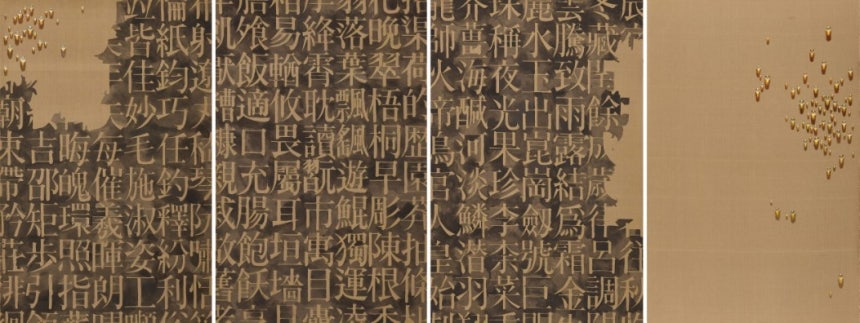 往秋
冬藏閏餘成歲律呂調
雲騰致雨露結爲霜金
麗水玉出崑崗劍號巨
珠稱夜光果珍李柰菜
芥薑海鹹河淡鱗潛羽
龍師火帝鳥官人皇始
渠荷的歷園莽抽條
杷晚翠梧桐早彫陳根委
翳落葉飄颻遊鯤獨運凌
摩絳霄耽讀翫市寓目囊
箱易輶攸畏屬耳垣墻具
飧飯適口充腸飽飫烹
飢厭糟糠親戚故舊
射遼丸嵇琴阮嘯恬
倫紙鈞巧任釣釋紛利俗
竝皆佳妙毛施淑姿工嚬
矢每催羲暉朗曜
晦魄環照指薪
吉邵矩步引領
廟束帶矜莊徘